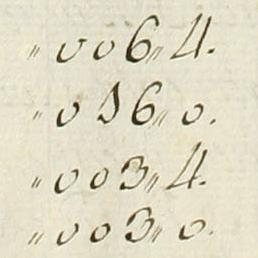 „ 0 0 6 „ 4.
„ 0 1 6 „ 0.
„ 0 0 3 „ 4.
„ 0 0 3 „ 0.